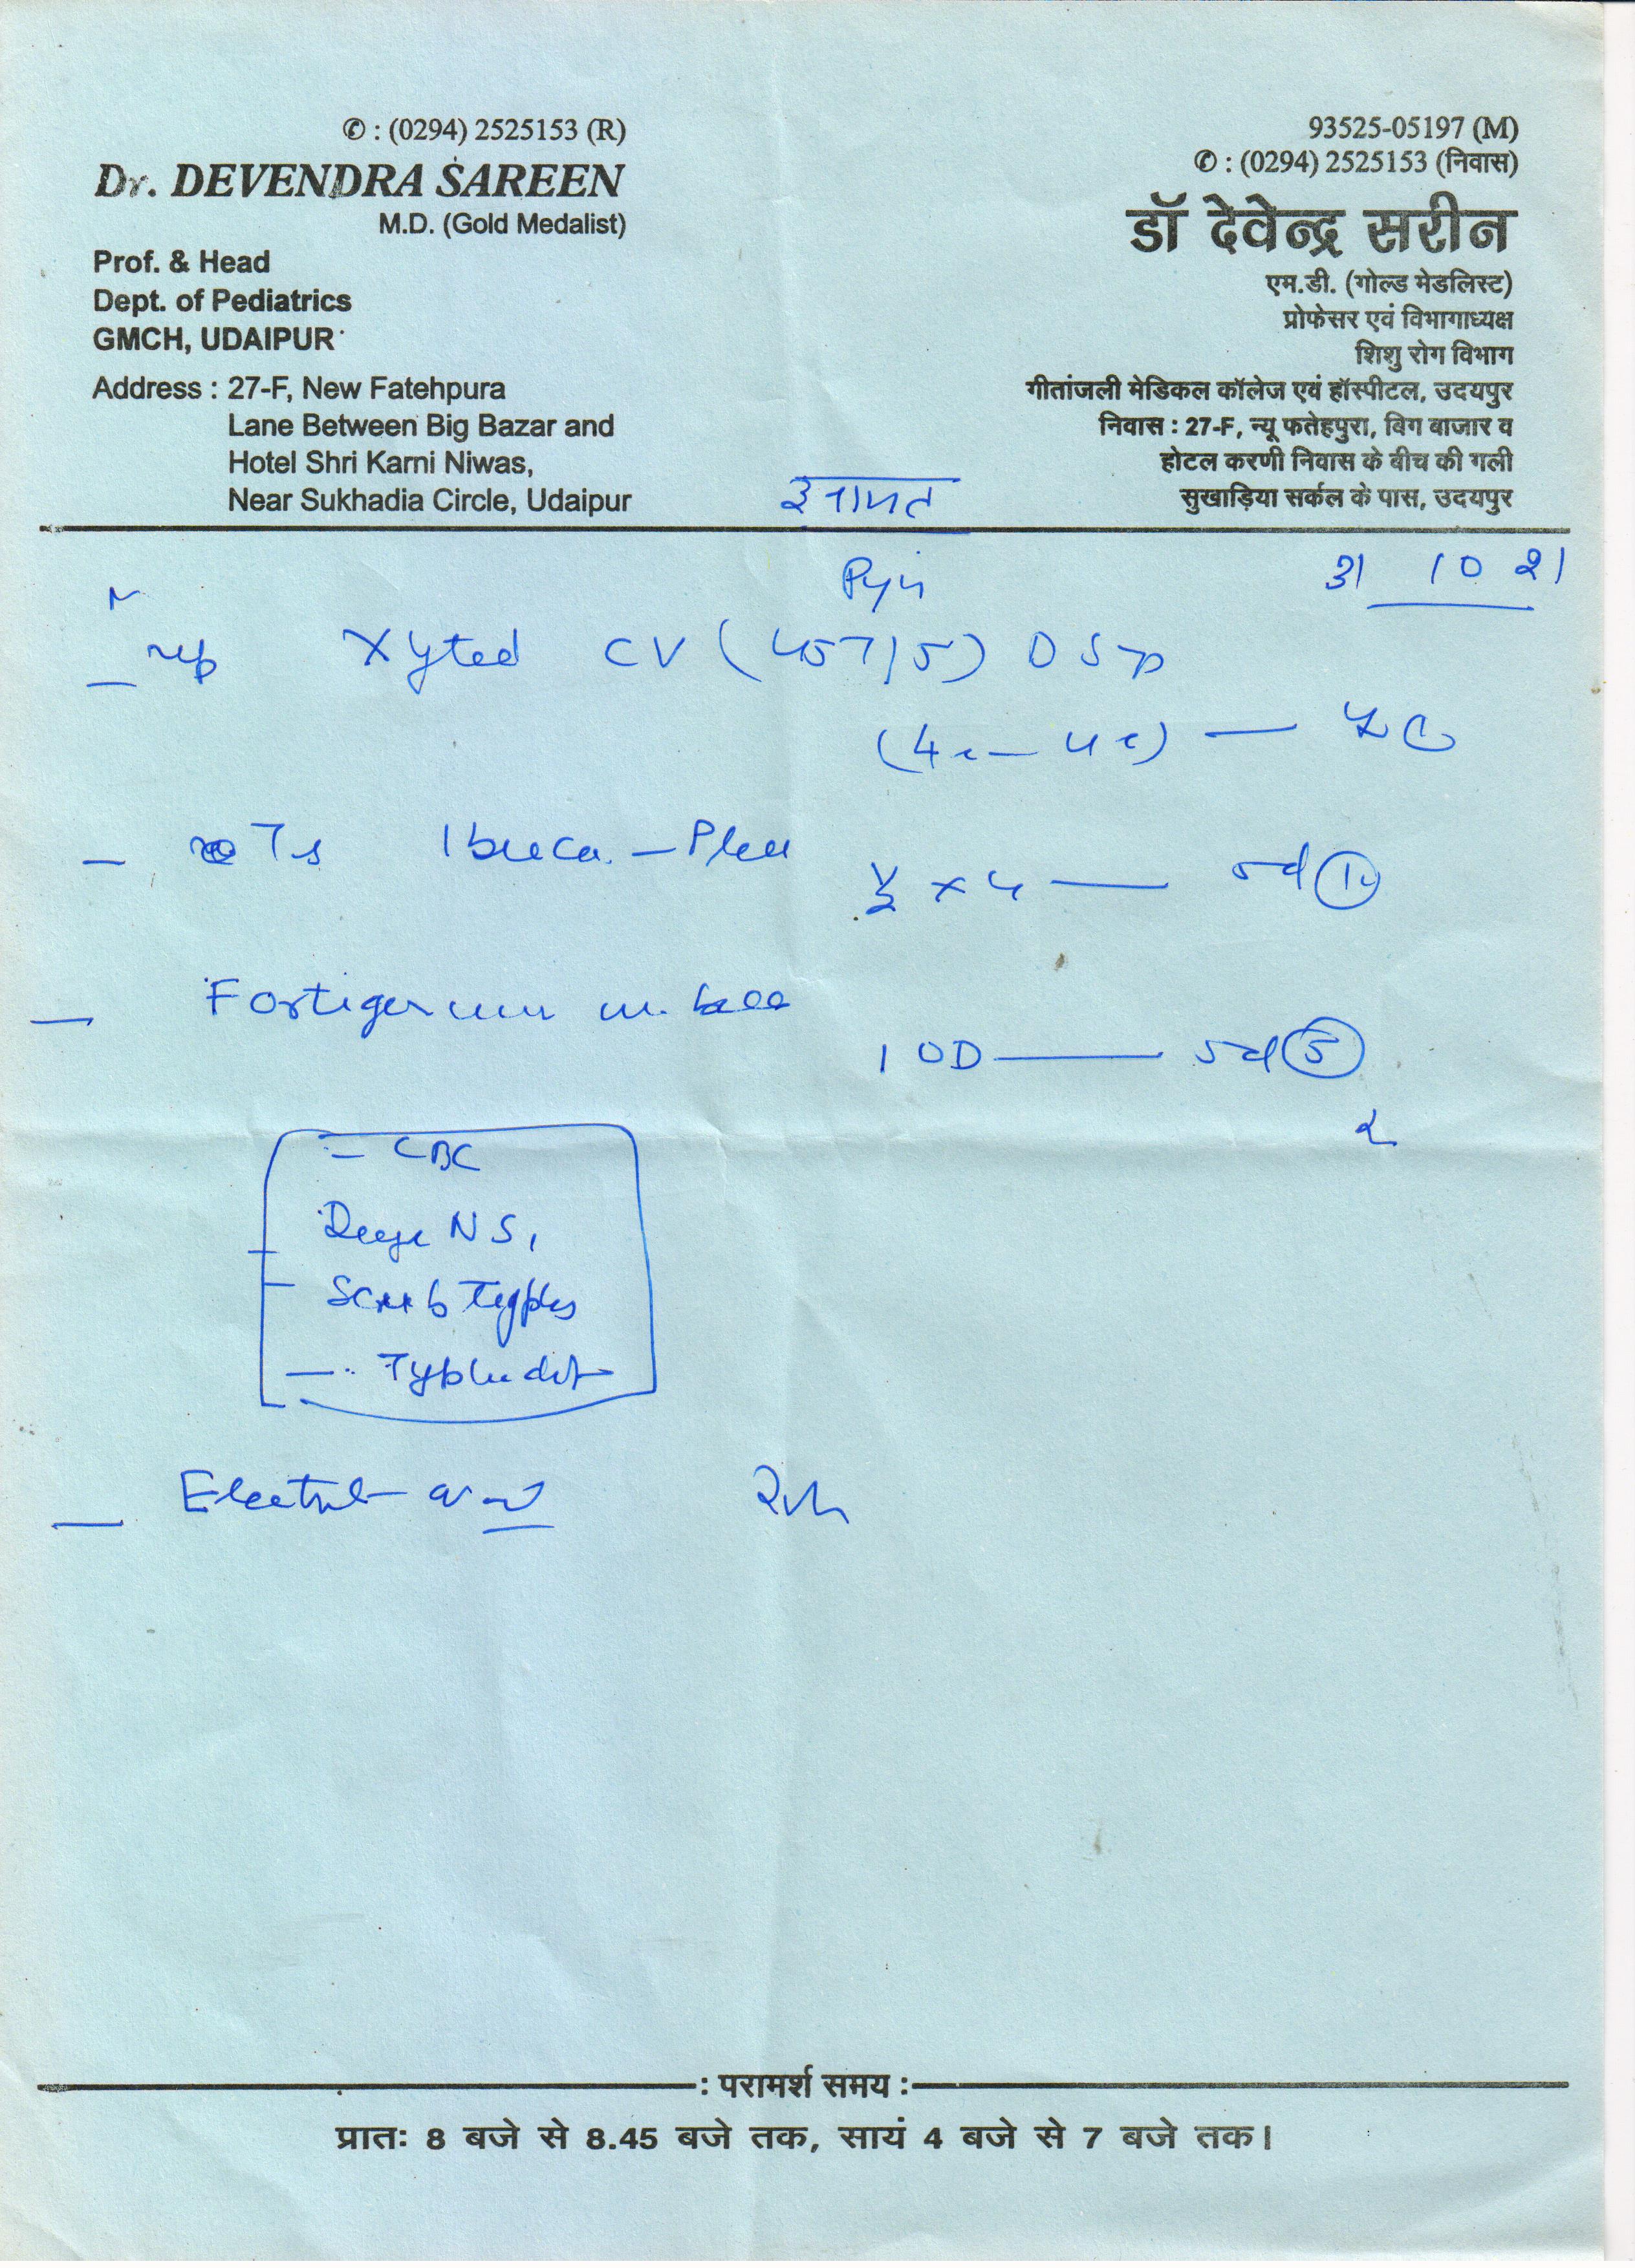 ✆ : (0294) 2525153 (R)
Dr. DEVENDRA SAREEN
M.D. (Gold Medalist)
Prof. & Head
Dept. of Pediatrics
GMCH, UDAIPUR
Address : 27-F, New Fatehpura
Lane Between Big Bazar and
Hotel Shri Karni Niwas,
Near Sukhadia Circle, Udaipur
93525-05197 (M)
✆ : (0294) 2525153 (निवास)
डॉ देवेन्द्र सरीन
एम.डी. (गोल्ड मेडलिस्ट)
प्रोफेसर एवं विभागाध्यक्ष
शिशु रोग विभाग
गीतांजली मेडिकल कॉलेज एवं हॉस्पीटल, उदयपुर
निवास : 27-F, न्यू फतेहपुरा, विग बाजार व
होटल करणी निवास के बीच की गली
सुखाड़िया सर्कल के पास, उदयपुर
इनायत
31 10 21
CV (457/5) DS
½ x 4 — 5d
1 OD — 5d (5)
- CBC
NS1
Scrub
- Typhidot
: परामर्श समय :
प्रातः 8 बजे से 8.45 बजे तक, सायं 4 बजे से 7 बजे तक।